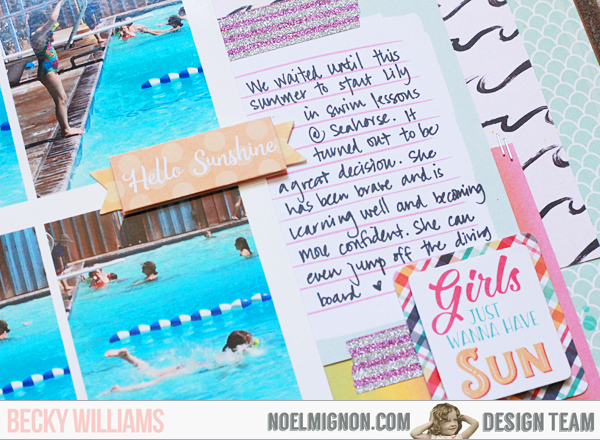 We waited until this
summer to start Lily
in swim lessons
@ Seahorse. It
turned out to be
a great decision. She
has been brave and is
learning well and becoming
more confident. She can
even jump off the diving
board ♥
Hello Sunshine
Girls
JUST
WANNA HAVE
SUN
BECKY WILLIAMS
NOELMIGNON.COM DESIGN TEAM